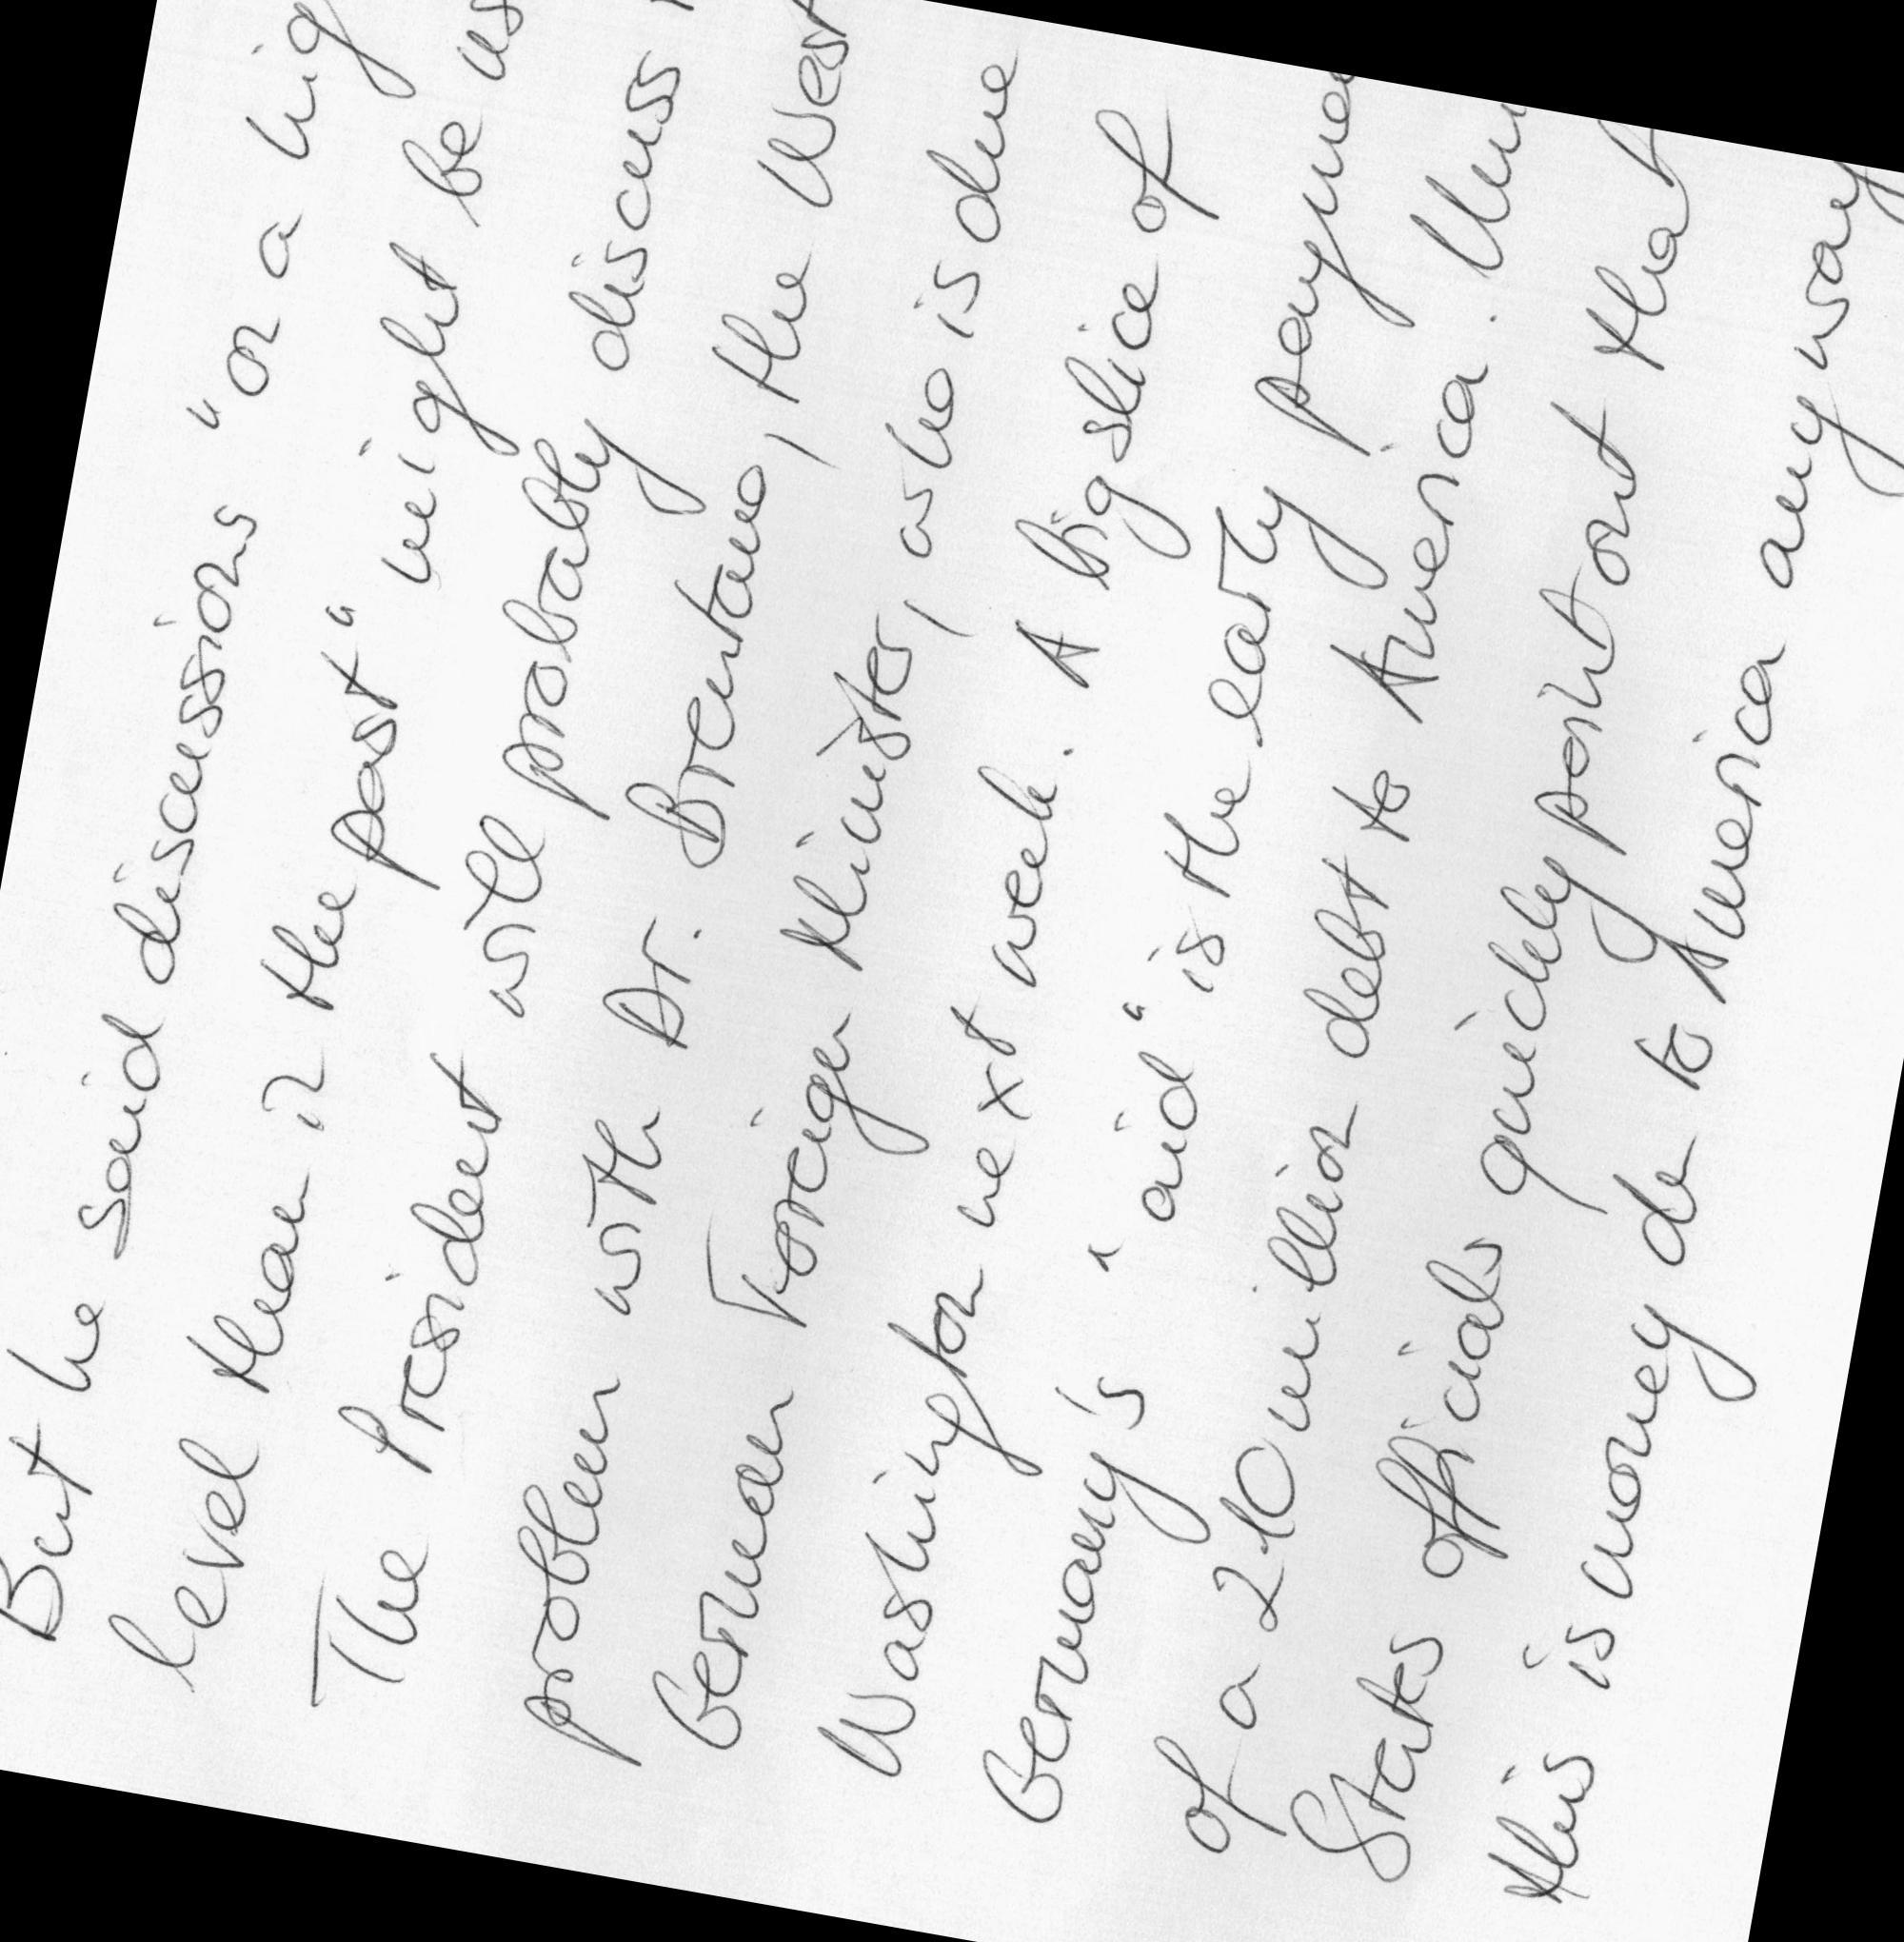 But he said discussions "on a hig
level than in the past" might be us
The President will probably discuss
problem with Dr. Brentano, the West
German Foreign Minister, who is due
Washington next week. A big slice of
Germany's "aid" is the early payme
of a 210 million debt to America.
States officials quickly point out that
this is money du to America anyway